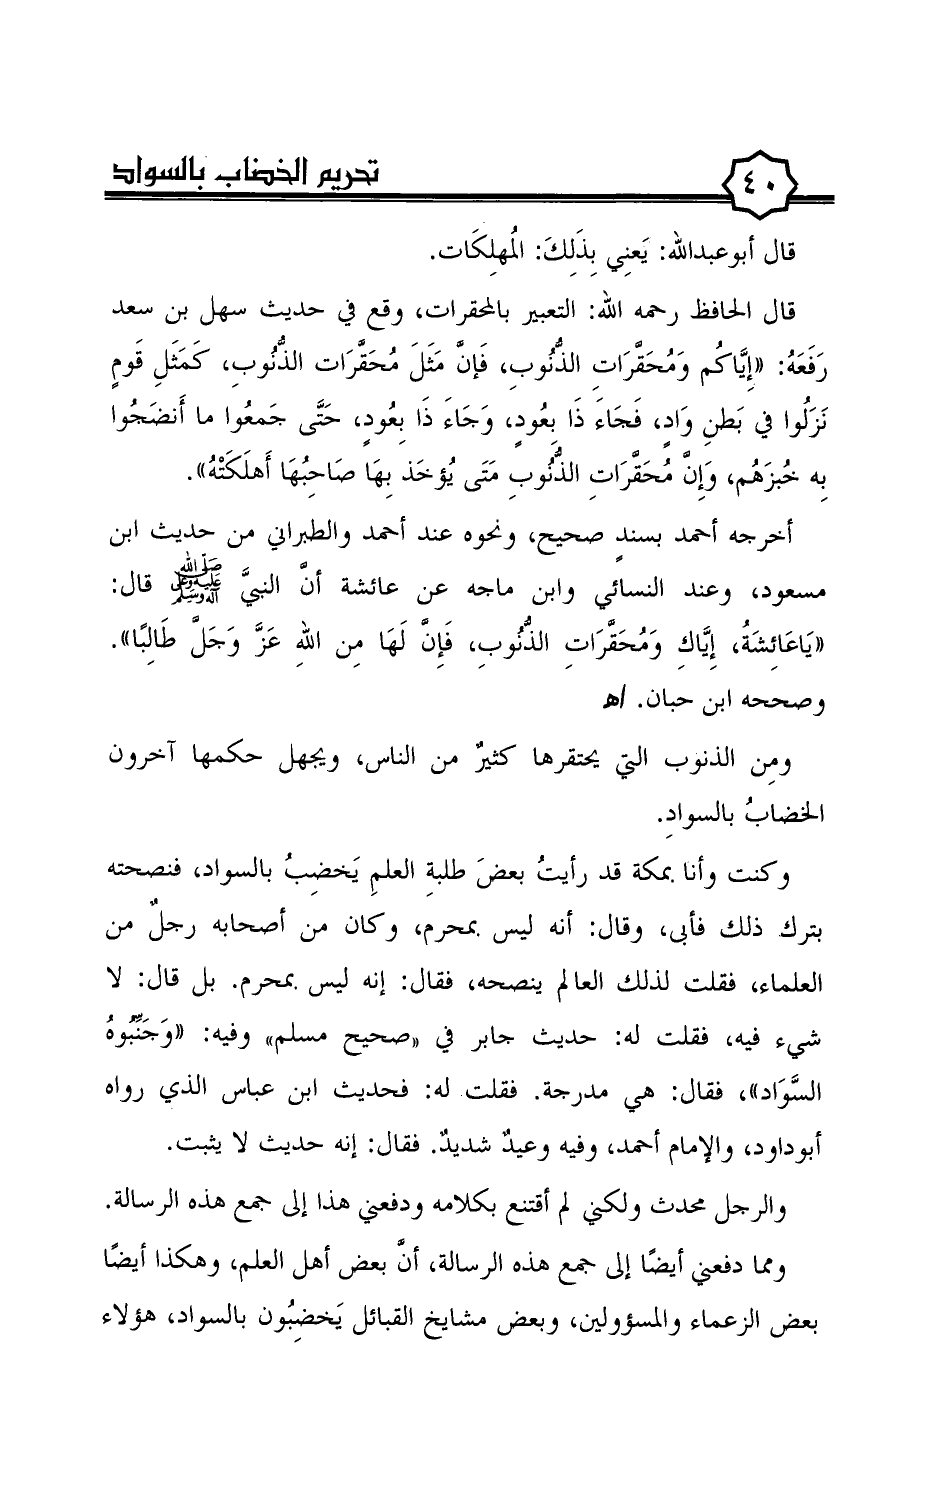 ٤٠
تحريم الخضاب بالسواد
قال أبوعبدالله: يَعنِي بِذَلِكَ: المُهلِكَات.
قال الحافظ رحمه الله: التعبير بالمحقرات، وقع في حديث سهل بن سعد
رَفَعَهُ: «إِيَّاكُم وَمُحَقَّرَاتِ الذُّنُوبِ، فَإِنَّ مَثَلَ مُحَقَّرَات الذُّنُوبِ، كَمَثَلِ قَومٍ
نَزَلُوا فِي بَطنِ وَادٍ، فَجَاءَ ذَا بِعُودٍ، وَجَاءَ ذَا بِعُودٍ، حَتَّى جَمعُوا ما أَنضَجُوا
بِه خُبزَهُم، وَإِنَّ مُحَقَّرَاتِ الذُّنُوبِ مَتَى يُؤخَذ بِهَا صَاحِبُهَا أَهلَكَتْهُ».
أخرجه أحمد بسندٍ صحيح، ونحوه عند أحمد والطبراني من حديث ابن
مسعود، وعند النسائي وابن ماجه عن عائشة أنَّ النبيَّ صلى الله عليه وآله وسلم قال:
«يَاعَائِشَةُ، إِيَّاكِ وَمُحَقَّرَاتِ الذُّنُوبِ، فَإِنَّ لَهَا مِن اللهِ عَزَّ وَجَلَّ طَالِبًا».
وصححه ابن حبان. اﻫ
ومِن الذنوب التي يحتقرها كثيرٌ من الناس، ويجهل حكمها آخرون
الخضابُ بالسوادِ.
وكنت وأنا بمكة قد رأيتُ بعضَ طلبةِ العلمِ يَخضِبُ بالسواد، فنصحته
بترك ذلك فأبى، وقال: أنه ليس بمحرم، وكان من أصحابه رجلٌ من
العلماء، فقلت لذلك العالم ينصحه، فقال: إنه ليس بمحرم. بل قال: لا
شيء فيه، فقلت له: حديث جابر في «صحيح مسلم» وفيه: «وَجَنِّبُوهُ
السَّوَاد»، فقال: هي مدرجة. فقلت له: فحديث ابن عباس الذي رواه
أبوداود، والإمام أحمد، وفيه وعيدٌ شديدٌ. فقال: إنه حديث لا يثبت.
والرجل محدث ولكني لم أقتنع بكلامه ودفعني هذا إلى جمع هذه الرسالة.
ومما دفعني أيضًا إلى جمع هذه الرسالة، أنَّ بعض أهل العلم، وهكذا أيضًا
بعض الزعماء والمسؤولين، وبعض مشايخ القبائل يَخضِبُون بالسواد، هؤلاء